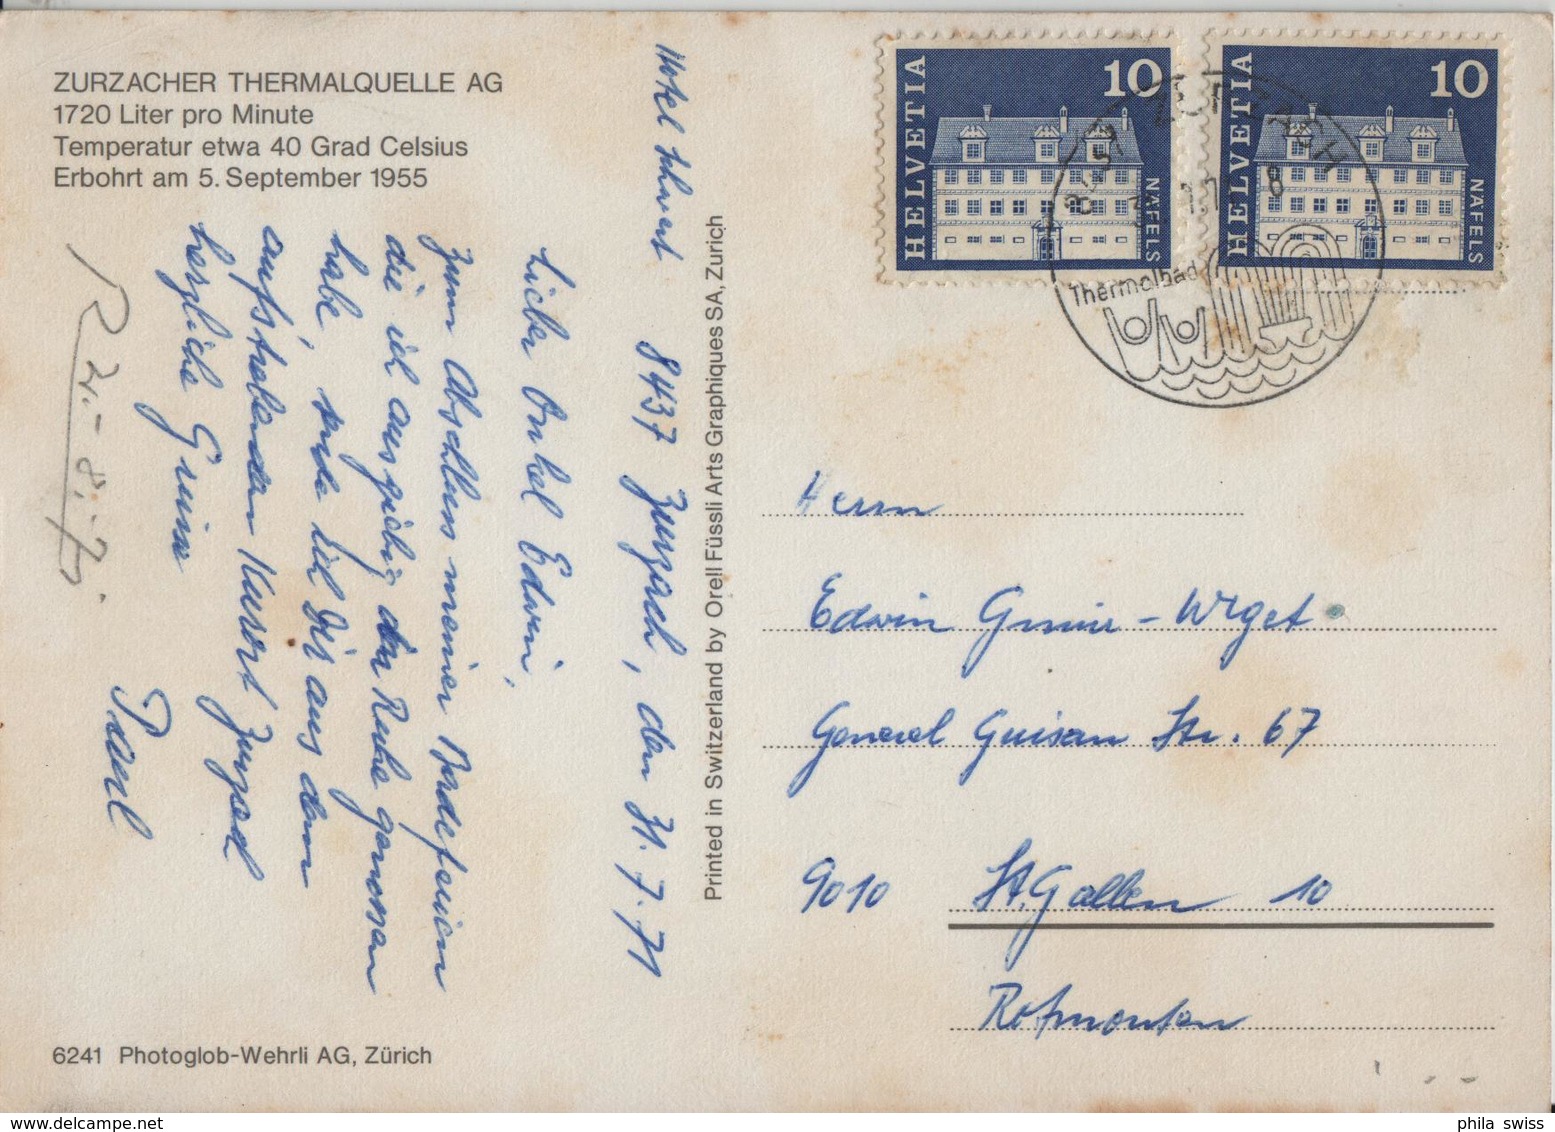 ZURZACHER THERMALQUELLE AG
1720 Liter pro Minute
Temperatur etwa 40 Grad Celsius
Erbohrt am 5. September 1955
Hotel Schwert 8437 Zurzach, den 31.7.71
Lieber Onkel Edwin,
Zum Abschluss meiner Badeferien
die ich ausgiebig der Ruhe genossen
habe, sende ich Dir aus dem
aufstrebenden Kurort Zurzach
herzliche Grüsse
Paul
R 21.-8.-7.
6241 Photoglob-Wehrli AG, Zürich
Printed in Switzerland by Orell Füssli Arts Graphiques SA, Zurich
HELVETIA 10 NÄFELS
HELVETIA 10 NÄFELS
8437 ZURZACH
Thermalbad
Herrn
Edwin Gmür-Wget
General Guisan Str. 67
9010 St. Gallen 10
Rotmonten
phila swiss